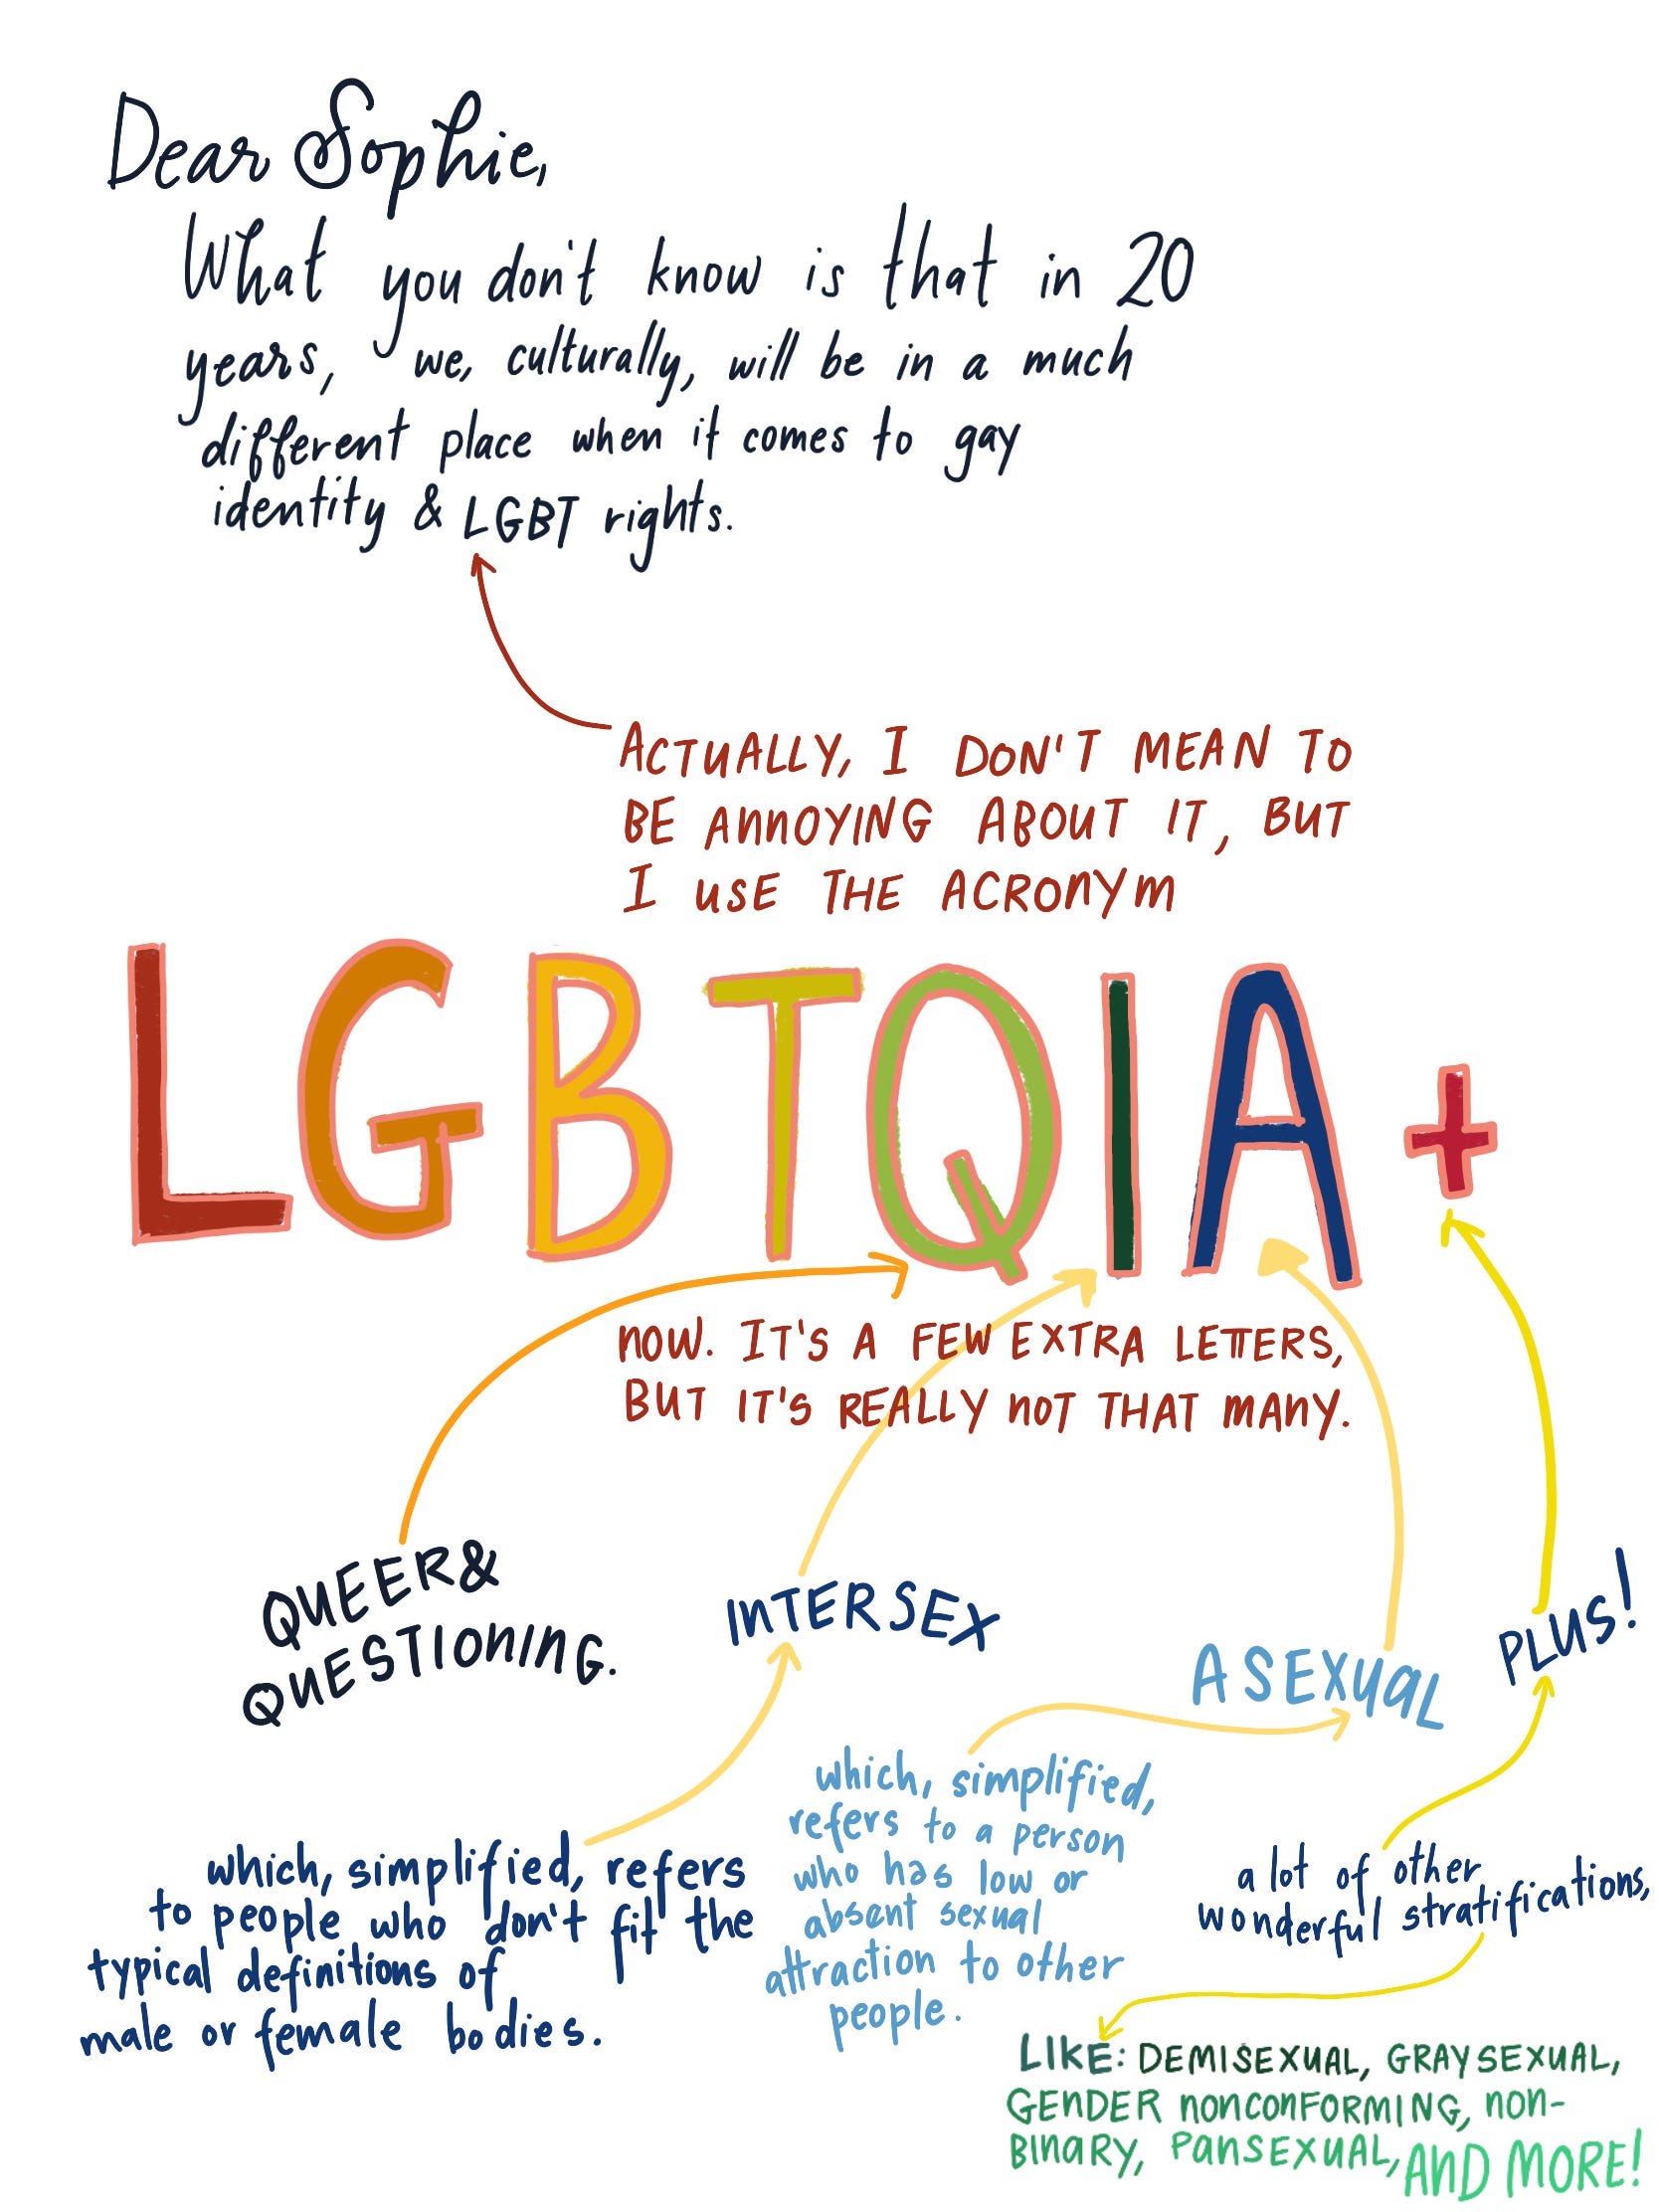 Dear Sophie,
What you don't know is that in 20
years, we, culturally, will be in a much
different place when it comes to gay
identity & LGBT rights.
ACTUALLY, I DON'T MEAN TO
BE ANNOYING ABOUT IT, BUT
I USE THE ACRONYM
LGBTQIA+
NOW. IT'S A FEW EXTRA LETTERS,
BUT IT'S REALLY NOT THAT MANY.
QUEER &
QUESTIONING.
INTERSEX
which, simplified, refers
to people who don't fit the
typical definitions of
male or female bodies.
ASEXUAL
which, simplified,
refers to a person
who has low or
absent sexual
attraction to other
people.
PLUS!
a lot of other
wonderful stratifications,
LIKE: DEMISEXUAL, GRAYSEXUAL,
GENDER NONCONFORMING, NON-
BINARY, PANSEXUAL, AND MORE!